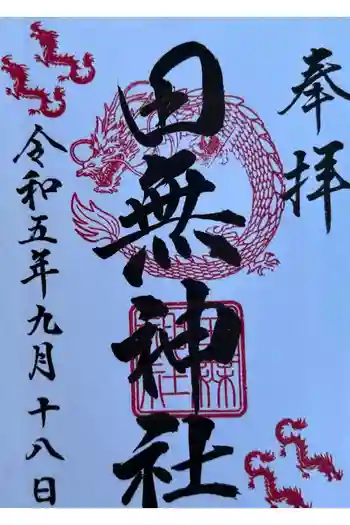 奉拝
田無神社
令和五年九月十八日